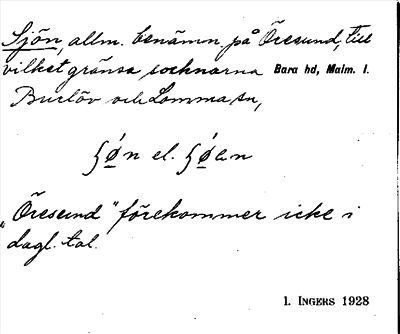 Sjön, allm. benämn. på Öresund, till
vilket gränsa socknarna Bara hd, Malm. l.
Burlöv och Lomma sn,
ʃǿn el. ʃǿen
"Öresund" förekommer icke i
dagl. tal.
I. INGERS 1928